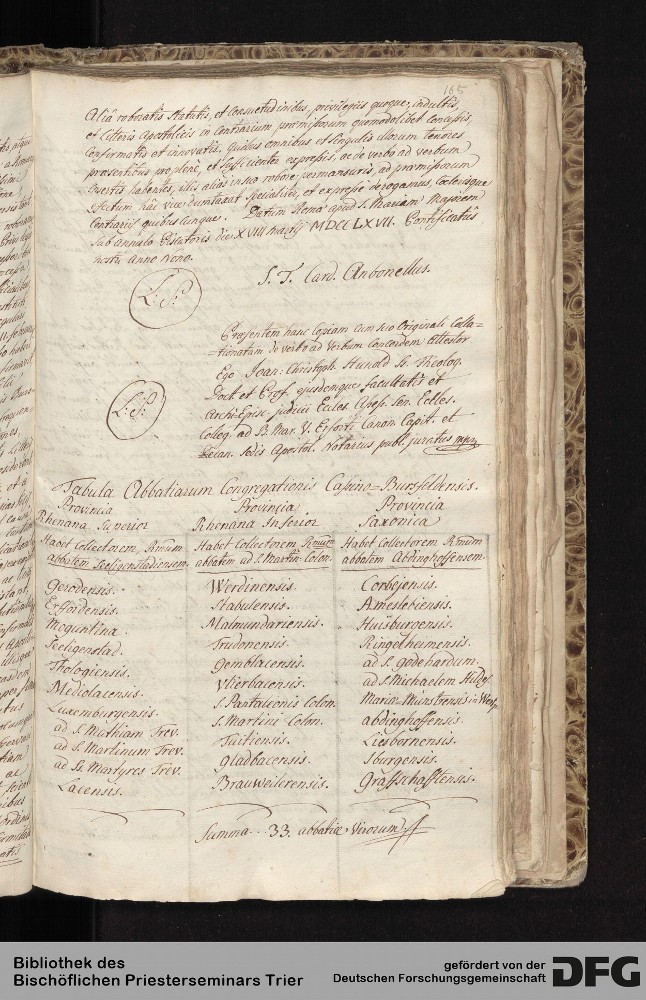 165
Aliâ roboratis statutis, et Consuetudinibus, privilegiis quoque, indultis,
et Litteris Apostolicis in Contrarium præmissorum quomodolibet Concessis,
Confirmatis et innovatis, quibus omnibus et singulis illorum tenores
præsentibus pro plenè, et sufficienter expressis, ac de verbo ad verbum
insertis habentes, illis alias in suo robore permansuris, ad præmissorum
effectum hac vice dumtaxat specialiter, et expresse derogamus, Cæterisque
Contrariis quibuscunque. Datum Romæ apud S. Mariam Majorem
sub annulo Piscatoris die XVIII martij MDCCLXVII. Pontificatûs
nostri Anno Nono.
L: S:
Card. Antonellus.
Præsentem hanc Copiam Cum suo Originali Colla=
=tionatam de verbo ad verbum Concordem Attestor
Ego Joan: Christoph. Hunold Ss. Theolog.
Doct et Prof. ejusdemque facultatis et
Archi-Episc. judicii Eccles. Assess. Sen. Eccles.
Colleg. ad B. Mar. V. Erforti Canon. Capit. et
L: S:
Decan. Sedis Apostol. Notarius publ. juratus mpr.
Tabula Abbatiarum Congregationis Casino=Bursfeldensis.
Provincia Provincia Provincia
Rhenana Superior Rhenana Inferior Saxonica
Habet Collectorem Rmum Habet Collectorem Rmum Habet Collectorem Rmum
abbatem Seeligenstadiensem. abbatem ad S. Martin. Colon. abbatem Abdinghoffensem.
Gerodensis. Werdinensis. Corbejensis.
Erffordensis. Stabulensis. Ameslebiensis.
Moguntina. Malmundariensis. Huisburgensis.
Seeligenstad. Trudonensis. Ringelheimensis.
Thologiensis. Gemblacensis. ad S. Godehardum.
Mediolacensis. Vlierbacensis. ad S. Michaelem Hildes.
Luxemburgensis. S. Pantaleonis Colon. Mariæ-Münstrensis in Westp.
ad S. Mathiam Trev. S. Martini Colon. abdinghoffensis.
ad S. Martinum Trev. Tuitiensis. Liesbornensis.
ad Ss. Martyres Trev. Gladbacensis. Iburgensis.
Lacensis. Brauweilerensis. Graffschafftensis.
Summa... 33. abbatiæ Virorum
Bibliothek des
Bischöflichen Priesterseminars Trier
gefördert von der
Deutschen Forschungsgemeinschaft
DFG